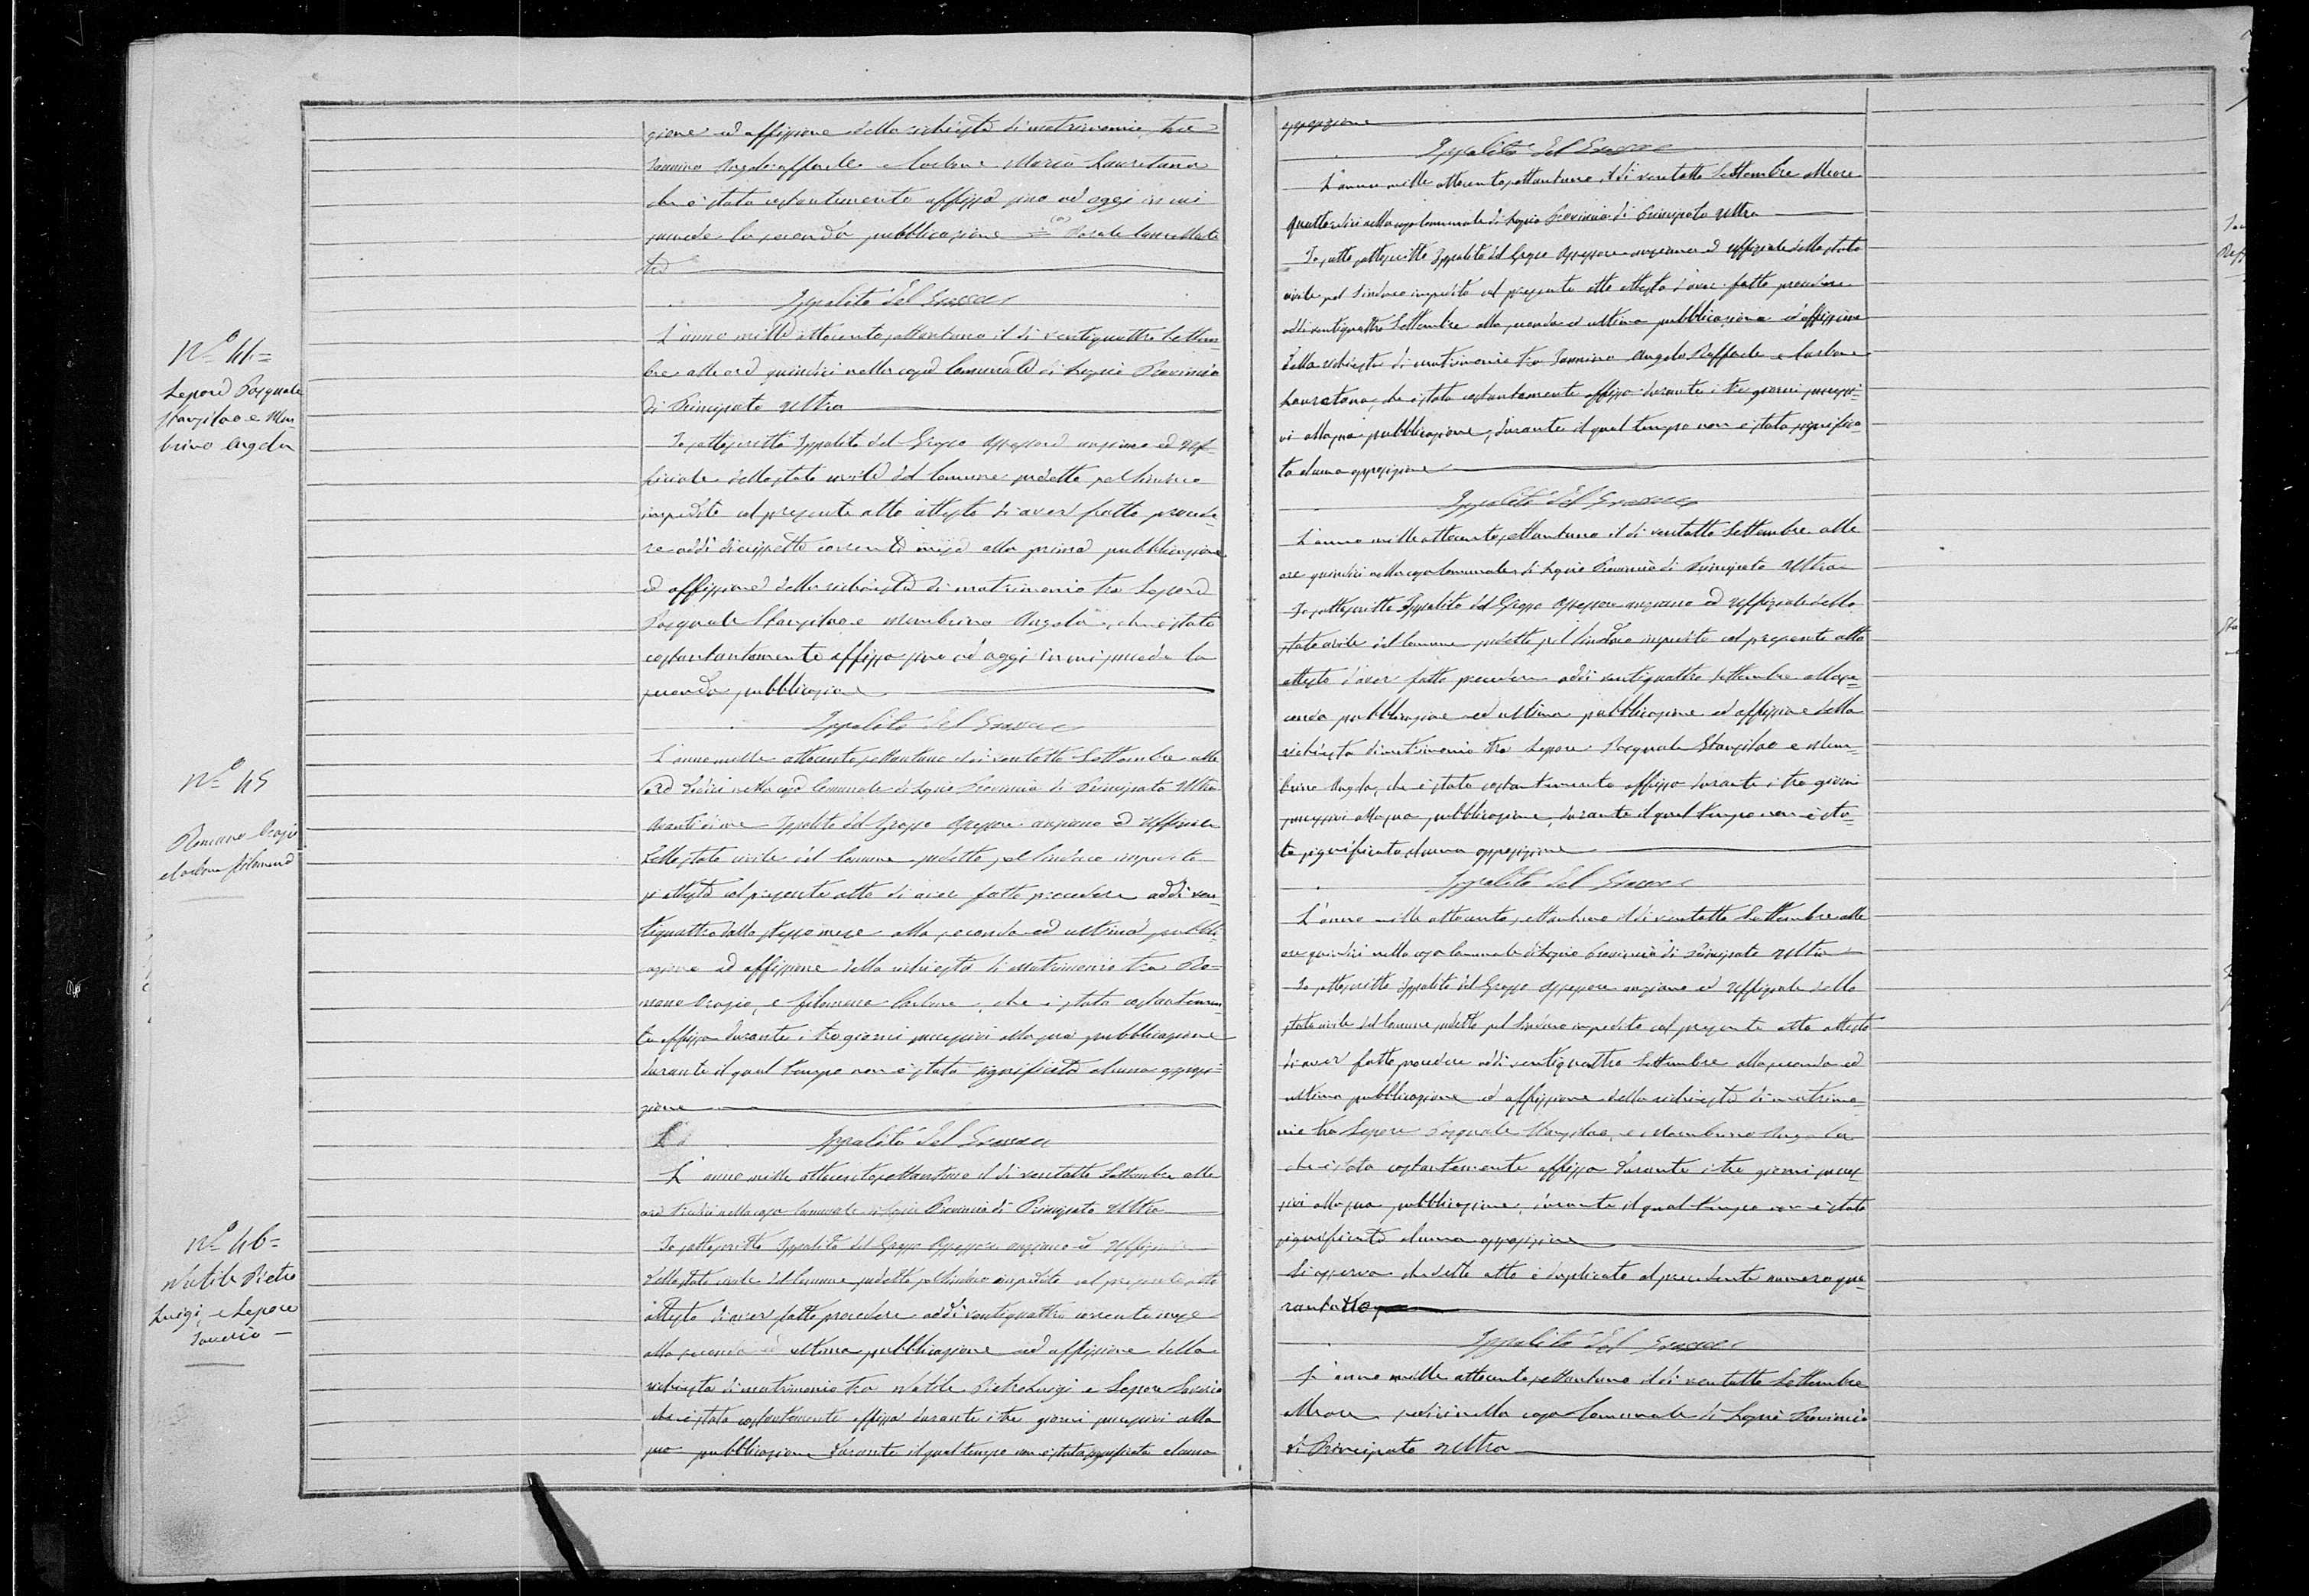 gione ed affissione della richiesta di matrimonio tra
Iannino Angeloraffaele e Carbone Maria Lauretana
che è stata costantemente affissa sino ad oggi in cui
procede la seconda pubblicazione = (a) Parole cancellate
Ippolito Del Grosso
L'anno mille ottocento settantuno il dì ventiquattro Settem-
bre alle ore quindici nella casa Comunale di Lapio Provincia
di Principato Ultra
Io sottoscritto Ippolito del Grosso Assessore anziano ed Uf-
ficiale dello stato civile del Comune sudetto pel Sindaco
impedito col presente atto attesto di aver fatto procede-
re addì diciassette corrente mese alla prima pubblicazione
ed affissione della richiesta di matrimonio tra Lepore
Pasquale Stanislao e Membrino Angela, che è stata
costantantemente affissa sino ad oggi in cui procede la
seconda pubblicazione
Ippolito Del Grosso
L'anno mille ottocento settantuno il dì ventotto Settembre alle
ore dodici nella casa Comunale di Lapio Provincia di Principato Ultra
Avanti di me Ippolito del Grosso Assessore anziano ed Uffiziale
dello stato civile del Comune sudetto pel Sindaco impedito
si attesta col presente atto di aver fatto procedere addì ven-
tiquattro dello stesso mese alla seconda ed ultima pubbli-
cazione ed affissione della richiesta di matrimonio tra Ro-
mano Orazio, e Filomena Carbone, che è stata costantemen-
te affissa durante i tre giorni successivi alla sua pubblicazione
durante il qual tempo non è stata significata alcuna opposi-
zione
Ippolito Del Grosso
L'anno mille ottocento settantuno il dì ventotto Settembre alle
ore dodici nella casa Comunale di Lapio Provincia di Principato Ultra
Io sottoscritto Ippolito del Grosso Assessore anziano ed Uffiziale
dello stato civile del Comune sudetto pel Sindaco impedito col presente atto
attesto di aver fatto procedere addì ventiquattro corrente mese
alla seconda ed ultima pubblicazione ed affissione della
richiesta di matrimonio tra Natile Pietro Luigi e Lepore Saveria
che è stata costantemente affissa durante i tre giorni successivi alla
sua pubblicazione durante il qual tempo non è stata significata alcuna
No 44=
Lepore Pasquale
Stanislao e Mem-
brino Angela
No 45
Romano Orazio
e Carbone Filomena
No 46=
Natile Pietro
Luigi, e Lepore
Saveria
opposizione
Ippolito Del Grosso
L'anno mille ottocento settantuno, il dì ventotto Settembre alle ore
quattordici nella casa Comunale di Lapio Provincia di Principato Ultra
Io sotto sottoscritto Ippolito del Grosso Assessore anziano ed Uffiziale dello stato
civile pel Sindaco impedito col presente atto attesto d'aver fatto procedere
addì ventiquattro Settembre alla seconda ed ultima pubblicazione ed affissione
della richiesta di matrimonio tra Iannino Angelo Raffaele e Carbone
Lauretana, che è stata costantemente affissa durante i tre giorni successi-
vi alla sua pubblicazione, durante il qual tempo non è stata significa-
ta alcuna opposizione
Ippolito Del Grosso
L'anno mille ottocento settantuno il dì ventotto Settembre alle
ore quindici nella casa Comunale di Lapio Provincia di Principato Ultra
Io sottoscritto Ippolito del Grosso Assessore anziano ed Uffiziale dello
stato civile del Comune sudetto pel Sindaco impedito col presente atto
attesto d'aver fatto procedere addì ventiquattro Settembre alla se-
conda pubblicazione ed ultima pubblicazione ed affissione della
richiesta di matrimonio tra Lepore Pasquale Stanislao e Mem-
brino Angela, che è stata costantemente affissa durante i tre giorni
successivi alla sua pubblicazione, durante il qual tempo non è sta-
ta significata alcuna opposizione
Ippolito Del Grosso
L'anno mille ottocento settantuno il dì ventotto Settembre alle
ore quindici nella casa Comunale di Lapio Provincia di Principato Ultra
Io sottoscritto Ippolito del Grosso Assessore anziano ed Uffiziale dello
stato civile del Comune sudetto pel Sindaco impedito col presente atto attesto
di aver fatto procedere addì ventiquattro Settembre alla seconda ed
ultima pubblicazione ed affissione della richiesta di matrimo-
nio tra Lepore Pasquale Stanislao, e Membrino Angela
che è stata costantemente affissa durante i tre giorni succes-
sivi alla sua pubblicazione, durante il qual tempo non è stata
significata alcuna opposizione
Si osserva che detto atto è duplicato al precedente numero qua-
rantotto
Ippolito Del Grosso
L'anno mille ottocento settantuno il dì ventotto Settembre
alle ore sedici nella casa Comunale di Lapio Provincia
di Principato Ultra